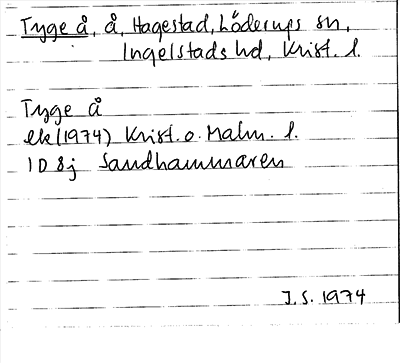 Tyge å, å, Hagestad, Löderups sn,
Ingelstads hd, Krist. l.
Tyge å
ek (1974) Krist. o. Malm. l.
1D 8j Sandhammaren
J.S. 1974